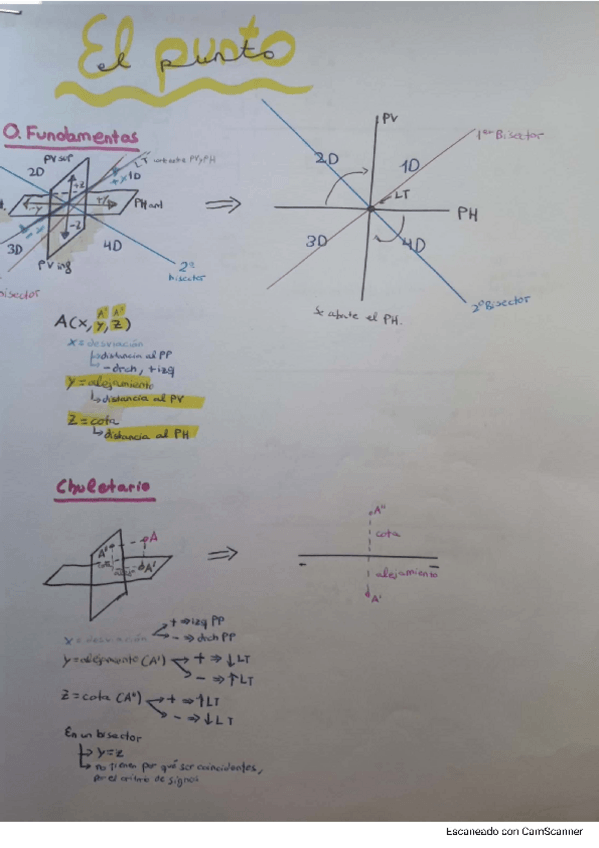 El punto
el punto
0. Fundamentos
PV sup
LT
entre PV y PH
2D
1D
+Y
+Z
-Y
+Y
PH ant
-Z
3D
4D
PV inf
2º
bisector
bisector
PV
1er Bisector
2D
1D
LT
PH
3D
4D
2º Bisector
Se abate el PH.
A' A"
A(x, y, z)
x = desviación
↳ distancia al PP
↳ - drch, + izq
y = alejamiento
↳ distancia al PV
z = cota
↳ distancia al PH
Chuletario
A"
A
A'
cota
A"
cota
alejamiento
A'
+ ⇒ izq PP
x = desviación
- ⇒ drch PP
y = alejamiento (A')
+ ⇒ ↓ LT
- ⇒ ↑ LT
z = cota (A")
+ ⇒ ↑ LT
- ⇒ ↓ LT
En un bisector
↳ y = z
↳ no tienen por qué ser coincidentes,
por el criterio de signos
Escaneado con CamScanner